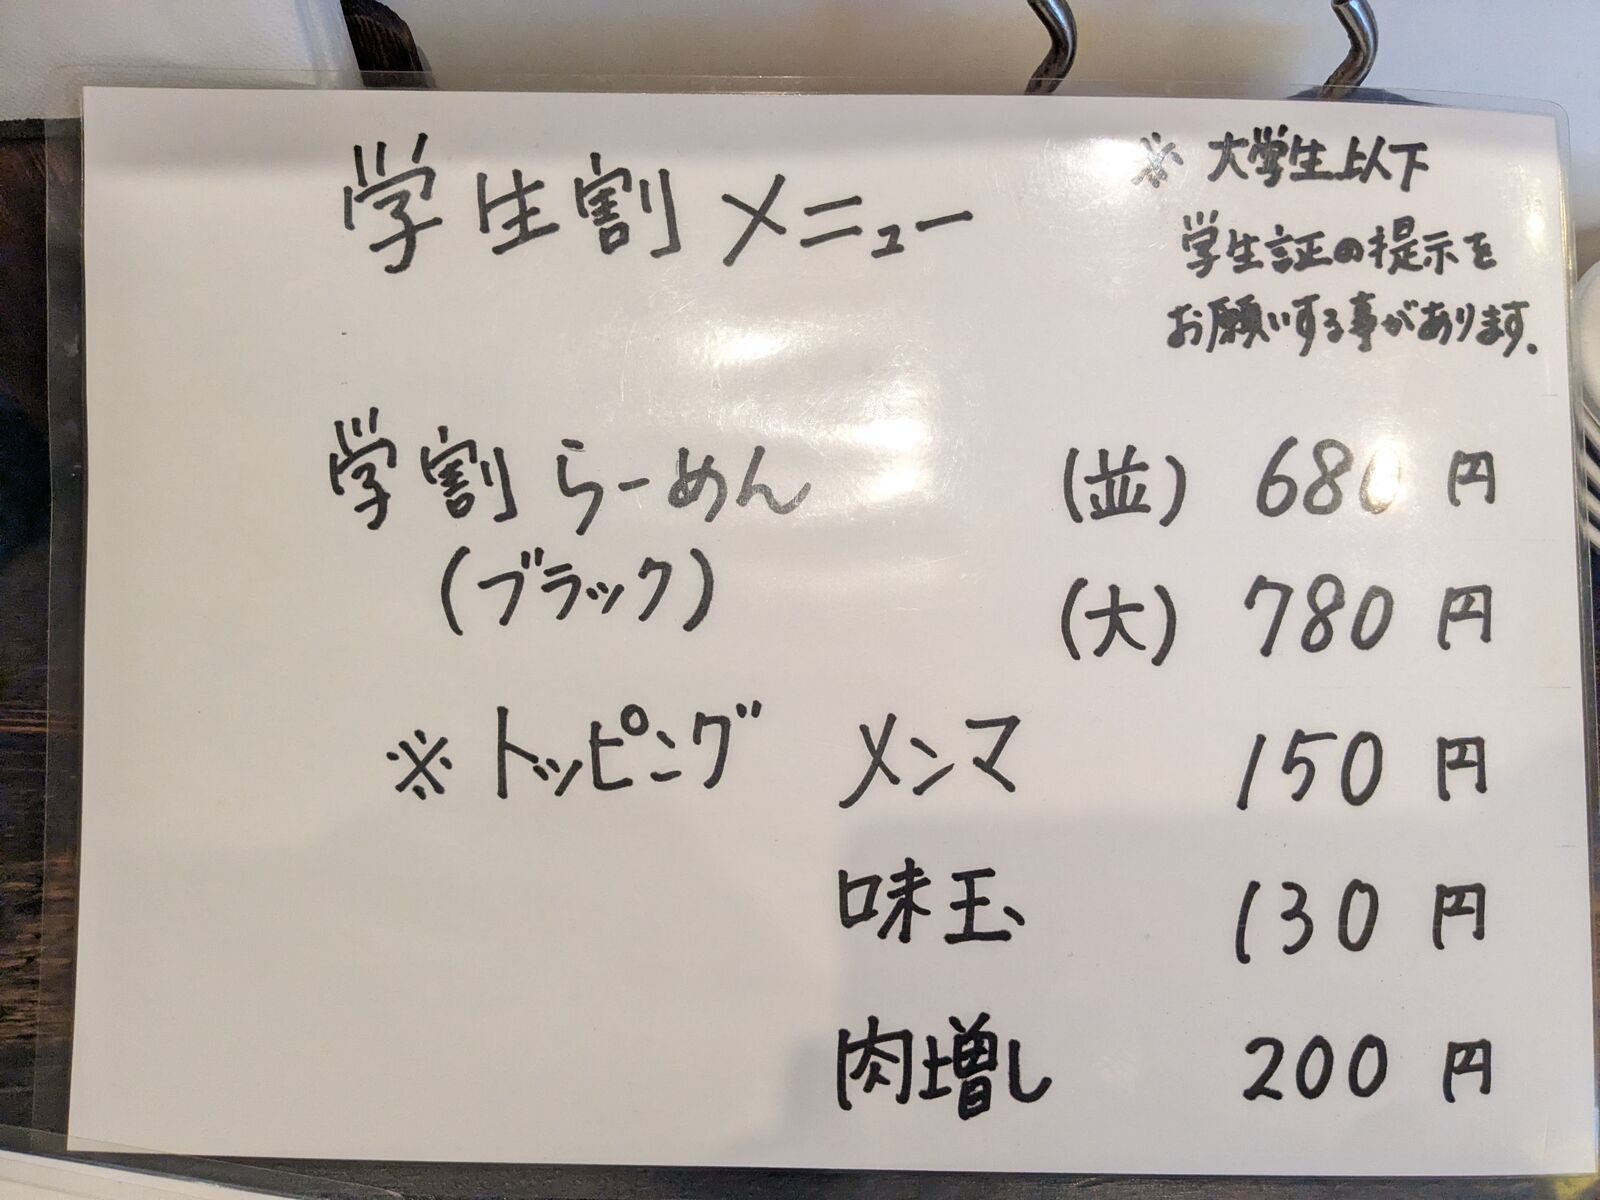 学生割メニュー
※ 大学生以下
学生証の提示を
お願いする事があります。
学割らーめん (並) 680 円
(ブラック) (大) 780 円
※ トッピング メンマ 150 円
味玉 130 円
肉増し 200 円